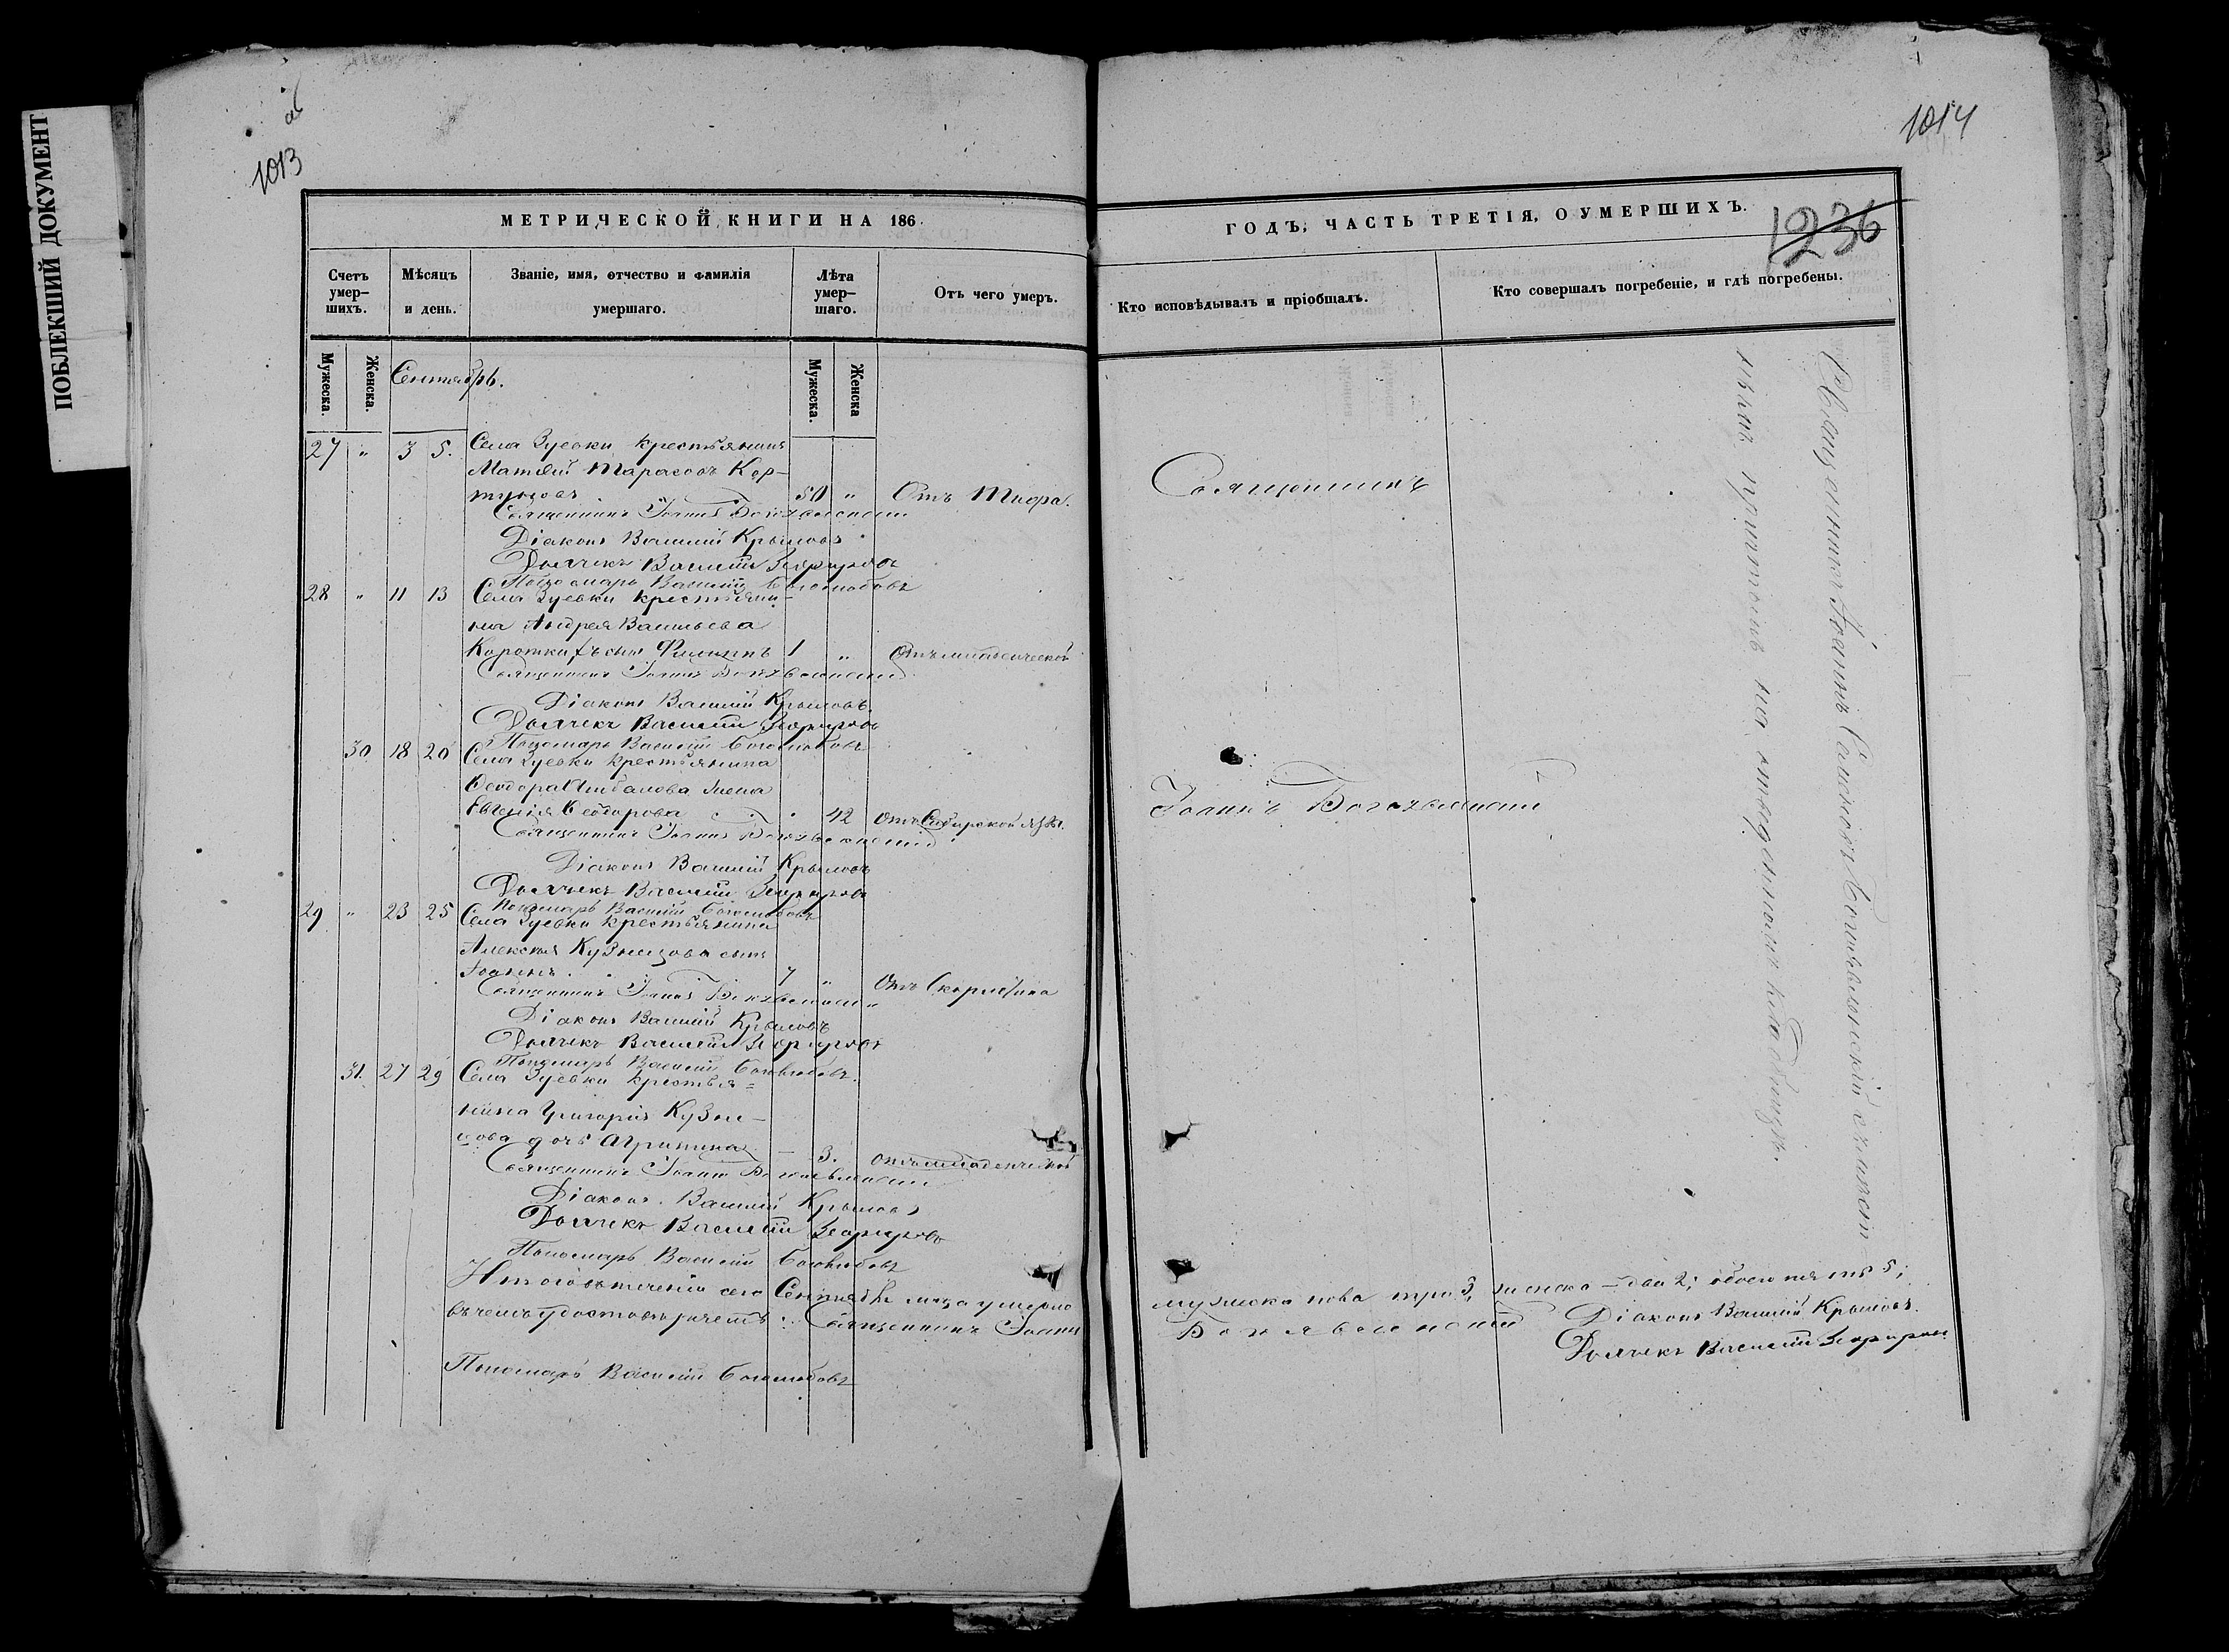 ПОБЛЕКШИЙ ДОКУМЕНТ
об
1013
МЕТРИЧЕСКОЙ КНИГИ НА 186
Счетъ умер-шихъ.
Мѣсяцъ и день.
Званіе, имя, отчество и фамилія умершаго.
Лѣта умер-шаго.
Отъ чего умеръ.
Мужеска.
Женска.
Сентябрь.
Мужеска.
Женска
27 " 3 5. Села Зуевки крестьянинъ
Матѳій Тарасовъ Кор-
50 " Отъ Тифа.
Священникъ Іоаннъ Богоявленскій
Діаконъ Василій Крыловъ
Дьячекъ Василій
Пономарь Василій Боголюбовъ
28 " 11 13 Села Зуевки крестьяни-
на Андрея Васильева
Короткихъ сынъ Филиппъ 1 " Отъ младенческой
Священникъ Іоаннъ Богоявленскій
Діаконъ Василій Крыловъ.
Дьячекъ Василій
Пономарь Василій Боголюбовъ
30 18 20 Села Зуевки крестьянина
Ѳеодора жена
Евгенія Ѳеодорова 42 Отъ Сибирской язвы.
Священникъ Іоаннъ Богоявленскій
Діаконъ Василій Крыловъ
Дьячекъ Василій
Пономарь Василій Боголюбовъ
29 " 23 25 Села Зуевки крестьянина
Алексѣя Кузнецова сынъ
Іоаннъ 7 " Отъ Скарлатина
Священникъ Іоаннъ Богоявленскій
Діаконъ Василій Крыловъ
Дьячекъ Василій
Пономарь Василій Боголюбовъ.
31. 27 29 Села Зуевки крестья=
нина Григорія Кузне-
цова дочь Агрипина — 3. Отъ младенческой
Священникъ Іоаннъ Богоявленскій
Діаконъ Василій Крыловъ
Дьячекъ Василій
Пономарь Василій Боголюбовъ
Итого въ теченіи сего Сентября м-ца умерло
въ чемъ удостовѣряемъ: Священникъ Іоаннъ
Пономарь Василій Боголюбовъ
1014
ГОДЪ, ЧАСТЬ ТРЕТІЯ, О УМЕРШИХЪ.
1236
Кто исповѣдывалъ и пріобщалъ.
Кто совершалъ погребеніе, и гдѣ погребены.
Священникъ
Іоаннъ Богоявленскій
Священникъ Іоаннъ Богоявленскій съ
причтомъ на отведенномъ кладбищѣ.
мужеска пола три 3, женска — два 2; обоего пять 5;
Богоявленскій Діаконъ Василій Крыловъ.
Дьячекъ Василій